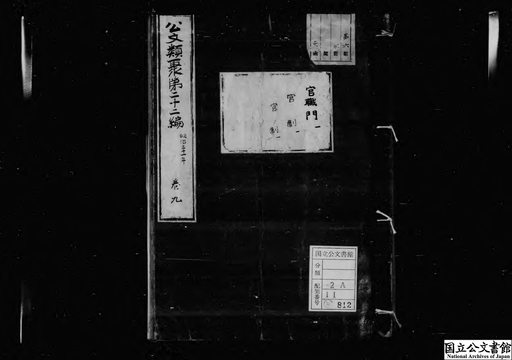 公文類聚第二十二編
明治三十一年
巻九
官職門一
官制一
官制一
国立公文書館
分類
配架番号
2A
11
812
国立公文書館
National Archives of Japan